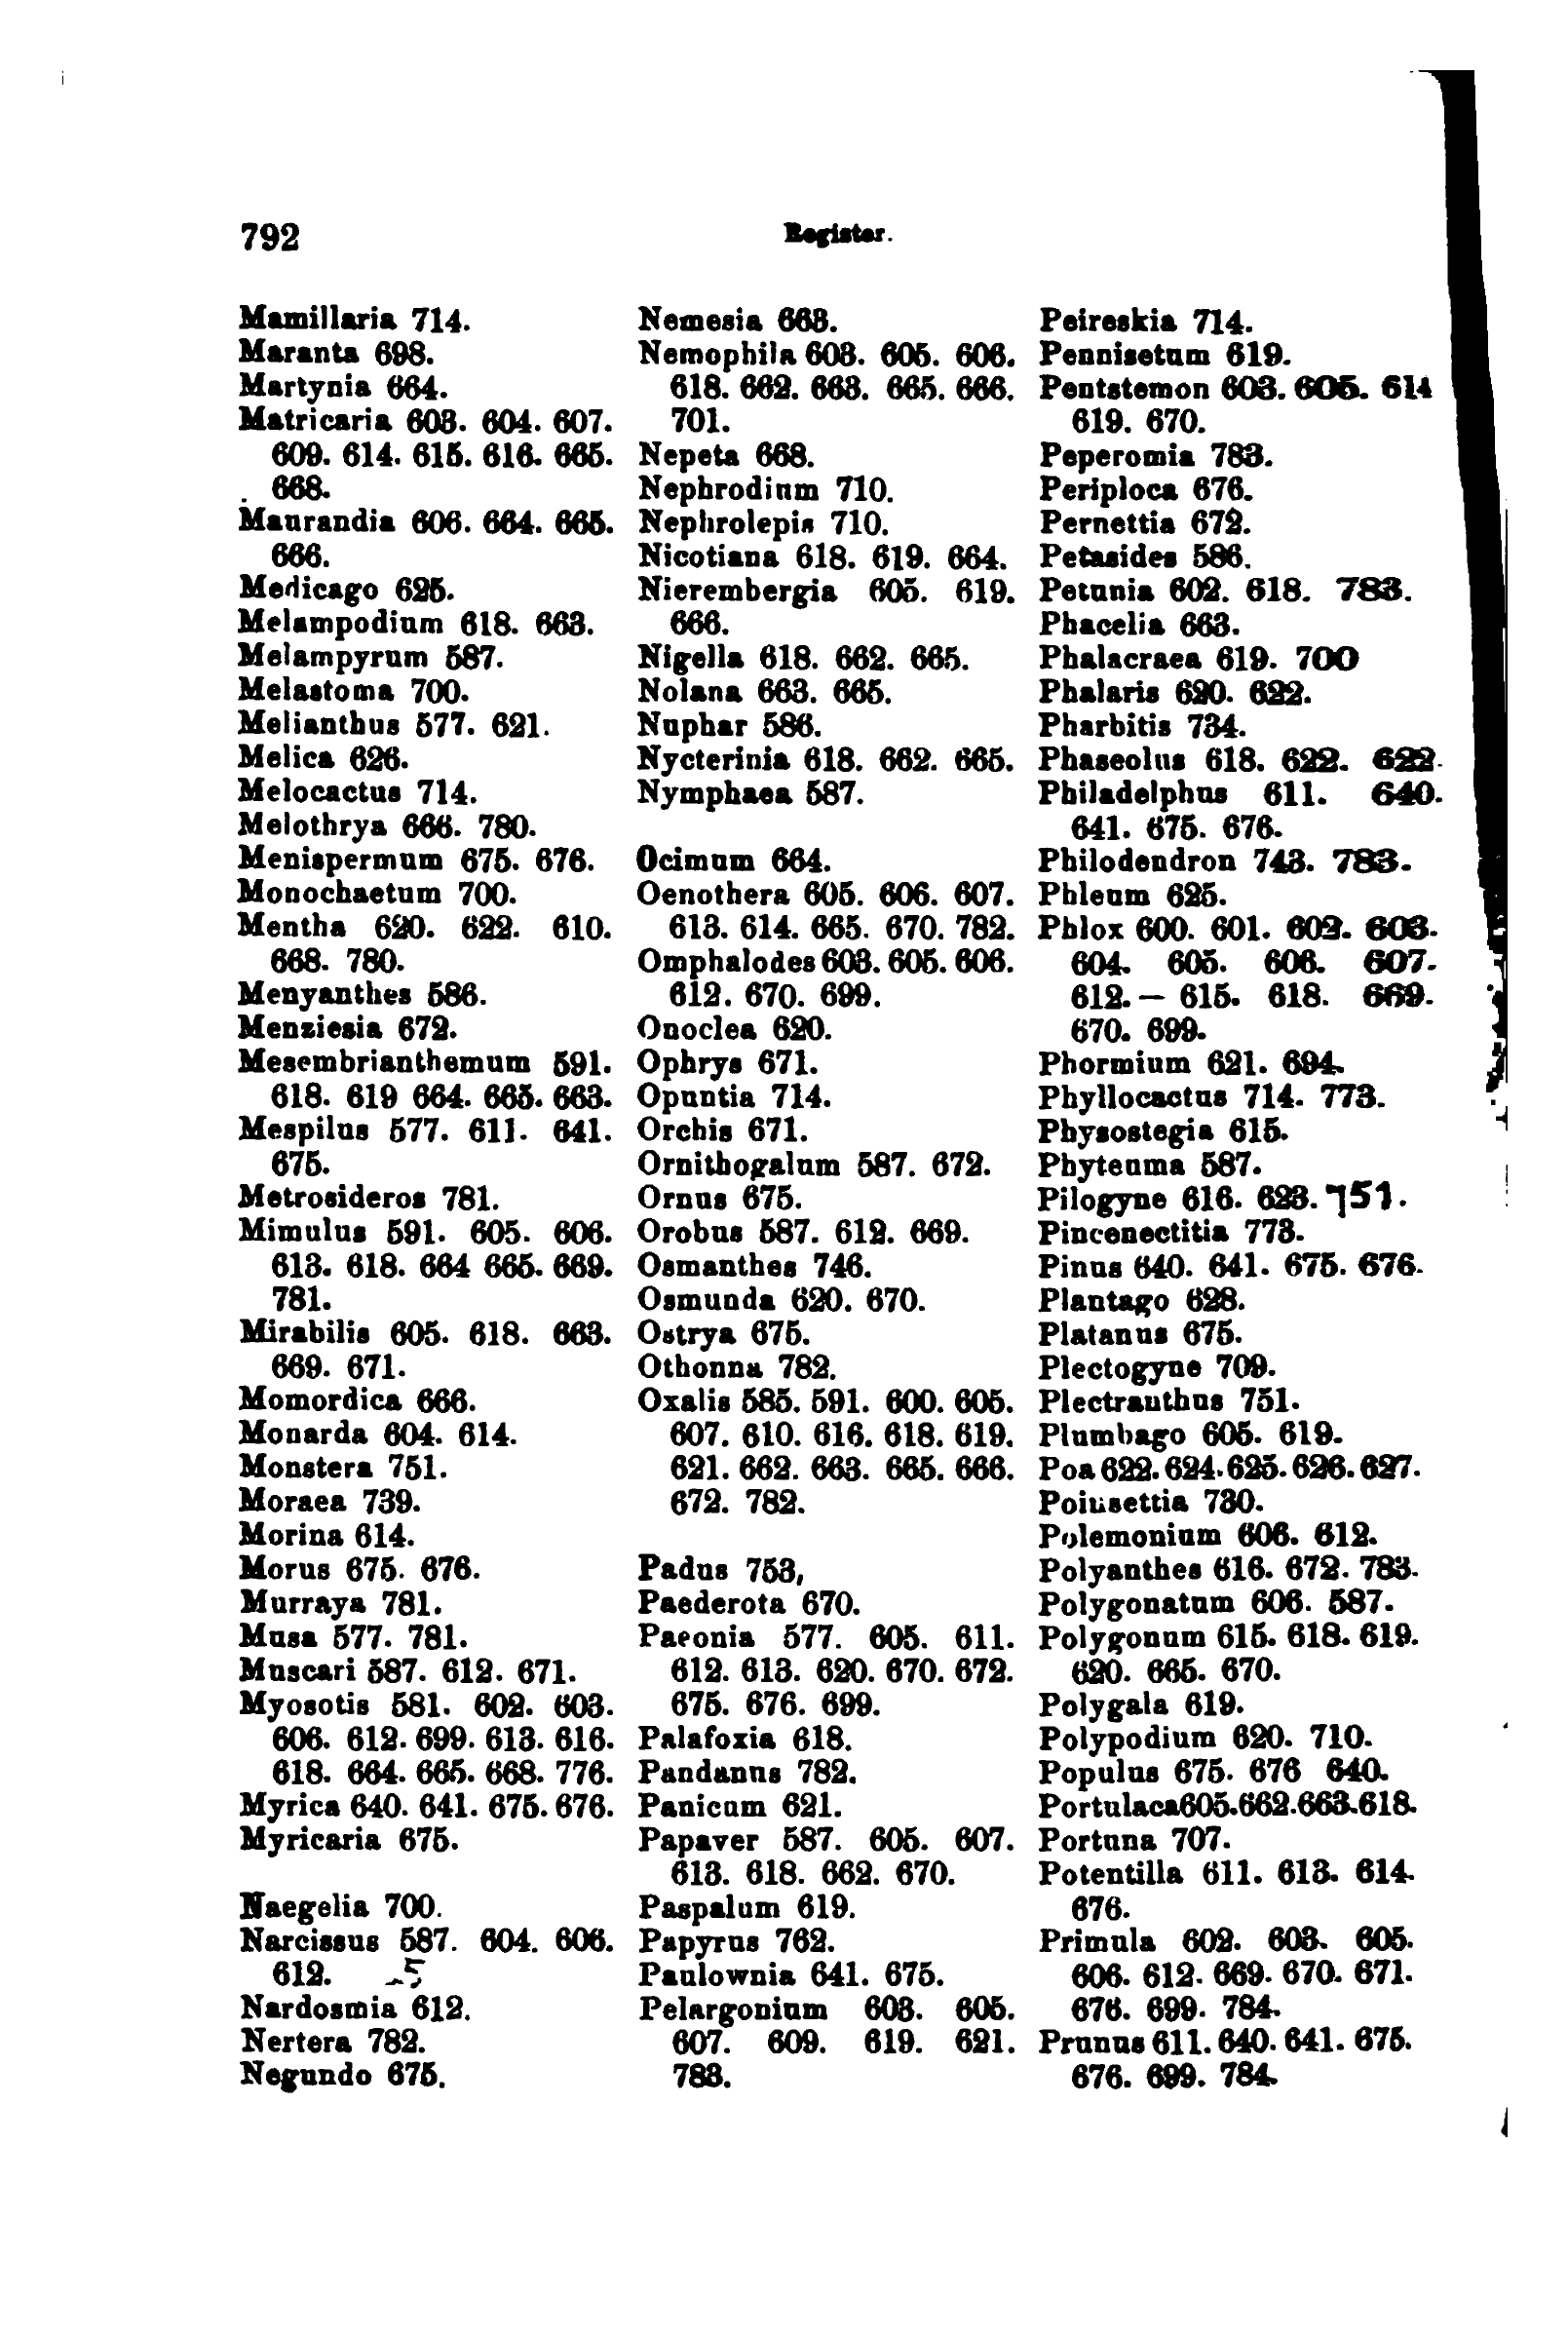 792
Register.
Mamillaria 714.
Maranta 698.
Martynia 664.
Matricaria 603. 604. 607.
609. 614. 615. 616. 665.
668.
Maurandia 606. 664. 665.
666.
Medicago 625.
Melampodium 618. 663.
Melampyrum 587.
Melastoma 700.
Melianthus 577. 621.
Melica 626.
Melocactus 714.
Melothrya 666. 780.
Menispermum 675. 676.
Monochaetum 700.
Mentha 620. 622. 610.
668. 780.
Menyanthes 586.
Menziesia 672.
Mesembrianthemum 591.
618. 619 664. 665. 663.
Mespilus 577. 611. 641.
675.
Metrosideros 781.
Mimulus 591. 605. 606.
613. 618. 664 665. 669.
781.
Mirabilis 605. 618. 663.
669. 671.
Momordica 666.
Monarda 604. 614.
Monstera 751.
Moraea 739.
Morina 614.
Morus 675. 676.
Murraya 781.
Musa 577. 781.
Muscari 587. 612. 671.
Myosotis 581. 602. 603.
606. 612. 699. 613. 616.
618. 664. 665. 668. 776.
Myrica 640. 641. 675. 676.
Myricaria 675.
Naegelia 700.
Narcissus 587. 604. 606.
612.
Nardosmia 612.
Nertera 782.
Negundo 675.
Nemesia 663.
Nemophila 603. 605. 606.
618. 662. 663. 665. 666.
701.
Nepeta 668.
Nephrodium 710.
Nephrolepis 710.
Nicotiana 618. 619. 664.
Nierembergia 605. 619.
666.
Nigella 618. 662. 665.
Nolana 663. 665.
Nuphar 586.
Nycterinia 618. 662. 665.
Nymphaea 587.
Ocimum 664.
Oenothera 605. 606. 607.
613. 614. 665. 670. 782.
Omphalodes 603. 605. 606.
612. 670. 699.
Onoclea 620.
Ophrys 671.
Opuntia 714.
Orchis 671.
Ornithogalum 587. 672.
Ornus 675.
Orobus 587. 612. 669.
Osmanthes 746.
Osmunda 620. 670.
Ostrya 675.
Othonna 782.
Oxalis 585. 591. 600. 605.
607. 610. 616. 618. 619.
621. 662. 663. 665. 666.
672. 782.
Padus 753,
Paederota 670.
Paeonia 577. 605. 611.
612. 613. 620. 670. 672.
675. 676. 699.
Palafoxia 618.
Pandanus 782.
Panicum 621.
Papaver 587. 605. 607.
613. 618. 662. 670.
Paspalum 619.
Papyrus 762.
Paulownia 641. 675.
Pelargonium 603. 605.
607. 609. 619. 621.
783.
Peireskia 714.
Pennisetum 619.
Pentstemon 603. 605. 614
619. 670.
Peperomia 783.
Periploca 676.
Pernettia 672.
Petasides 586.
Petunia 602. 618. 783.
Phacelia 663.
Phalacraea 619. 700
Phalaris 620. 622.
Pharbitis 734.
Phaseolus 618. 622. 622.
Philadelphus 611. 640.
641. 675. 676.
Philodendron 743. 783.
Phleum 625.
Phlox 600. 601. 602. 603.
604. 605. 606. 607.
612. — 615. 618. 669.
670. 699.
Phormium 621. 694.
Phyllocactus 714. 773.
Physostegia 615.
Phyteuma 587.
Pilogyne 616. 623. 751.
Pincenectitia 773.
Pinus 640. 641. 675. 676.
Plantago 628.
Platanus 675.
Plectogyne 709.
Plectrauthus 751.
Plumbago 605. 619.
Poa 622. 624. 625. 626. 627.
Poinsettia 730.
Polemonium 606. 612.
Polyanthes 616. 672. 783.
Polygonatum 606. 587.
Polygonum 615. 618. 619.
620. 665. 670.
Polygala 619.
Polypodium 620. 710.
Populus 675. 676 640.
Portulaca 605. 662. 663. 618.
Portuna 707.
Potentilla 611. 613. 614.
676.
Primula 602. 603. 605.
606. 612. 669. 670. 671.
676. 699. 784.
Prunus 611. 640. 641. 675.
676. 699. 784.